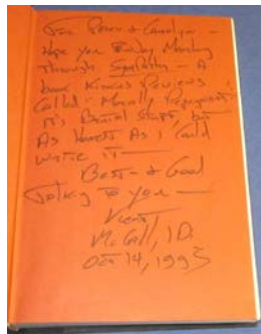 For Peter & Carolyn —
Hope you Enjoy Moving
Through Sympathy — A
book Kirkus Reviews
Called "Morally Repugnant."
It's Brutal Stuff, but
As Honest As I Could
Write It —
Best — & Good
Talking To you —
McCall, ID.
Oct 14, 1993